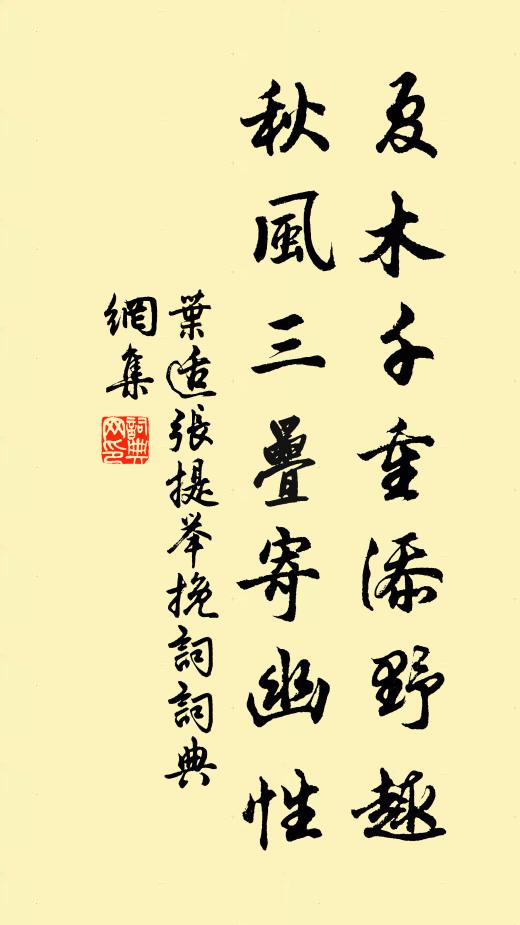 夏木千重添野趣
秋風三疊寄幽性
葉适張提举挽詞詞典
網集
詞典
网印